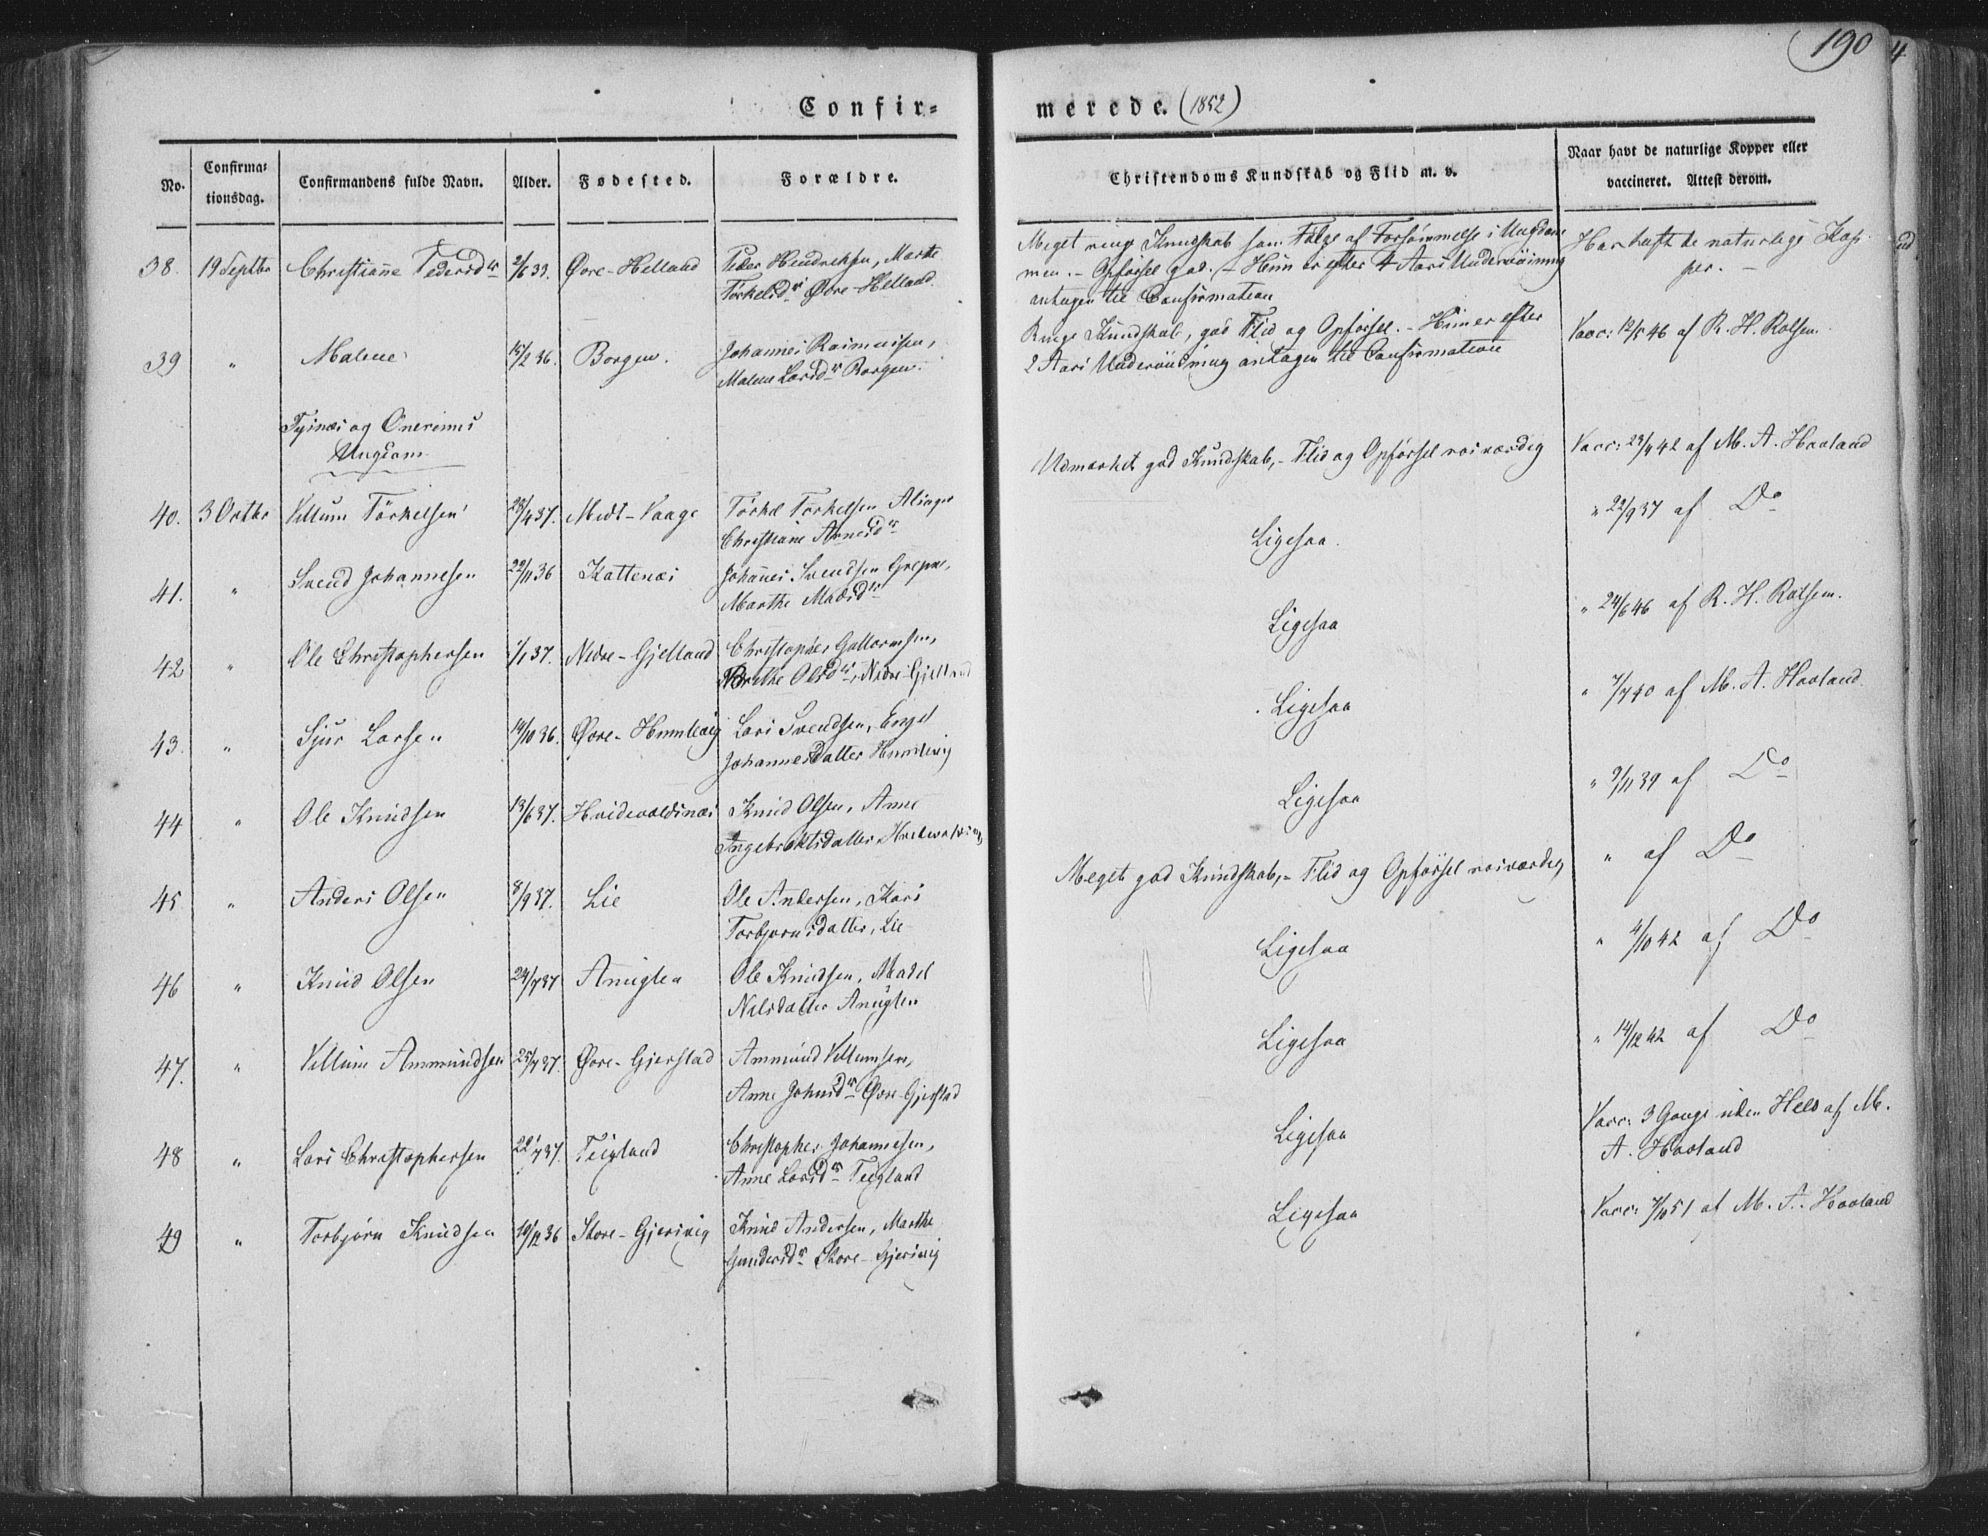 190
Confir=
merede. (1852)
No.
Confirma=
tionsdag.
Confirmandens fulde Navn.
Alder.
Fødested.
Forældre.
Christendoms Kundskab og Flid m. v.
Naar havt de naturlige Kopper eller
vaccineret. Attest derom.
38. 19 Septbr Christiane Pedersdr 2/6 33. Øvre-Helland Peder Hendriksen, Marte
Torkelsdr Øvre-Helland.
Meget ringe Kundskab som Følge af Forsømmelse i Ungdom
men. - Opførsel god. - Hun er efter 4 Aars Underviisning
antagen til Confirmation
Har havt de naturlige Kop
per. -
39 " Malene 15/2 36. Borgen. Johannes Rasmussen,
Malene Larsdr Borgen.
Ringe Kundskab, god Flid og Opførsel. - Hun er efter
2 Aars Underviisning antagen til Confirmation
Vacc: 12/5 46 af R. H. Rolfsen.
Tysnæs og Onereims
Ungdom
40. 3 Octbr Villum Torkelsen 23/4 37. Midt-Vaage Torkel Torkelsen
Christiane Arnesdr
Udmærket god Kundskab, - Flid og Opførsel roesværdig
Vacc: 23/9 42 af M. A. Haaland
41. " Svend Johannesen 22/11 36 Kattenæs Johannes Svendsen
Marthe
Ligesaa.
" 22/9 37 af Do
42 " Ole Christophersen 1/1 37. Nedre-Gjelland Christopher Guttormsen,
Marthe Olsdr, Nedre-Gjelland
Ligesaa
" 24/6 46 af R. H. Rolfsen.
43. " Sjur Larsen 14/10 36. Øvre-Humlevig Lars Svendsen, Engel
Johannesdatter Humlevig
Ligesaa
" 7/7 40 af M. A. Haaland.
44 " Ole Knudsen 13/6 37. Hvidevoldsnæs Knud Olsen, Anne
Ingebrektsdatter
Ligesaa
" 9/11 39 af Do
45 " Anders Olsen 8/9 37. Lie Ole Andersen, Kari
Torbjørnsdatter, Lie
Meget god Kundskab, - Flid og Opførsel roesværdig
" af Do
46 " Knud Olsen 24/7 37 Anuglen Ole Knudsen, Madel
Nilsdatter Anuglen
Ligesaa
" 4/10 42 af Do
47. " Villum Ammundsen 25/7 37. Øvre-Gjerstad Ammund Villumsen,
Anne Johnsdr Øvre-Gjerstad
Ligesaa
" 14/12 42 af Do
48 " Lars Christophersen 22/7 37. Teigland Christopher Johannesen,
Anne Larsdr Teigland
Ligesaa
Vacc: 3 Gange uden Held af M.
A. Haaland
49 " Torbjørn Knudsen 19/12 36 Store-Gjersvig Knud Andersen, Marthe
Gundersdr Store-Gjersvig
Ligesaa
Vacc: 7/10 51 af M. A. Haaland